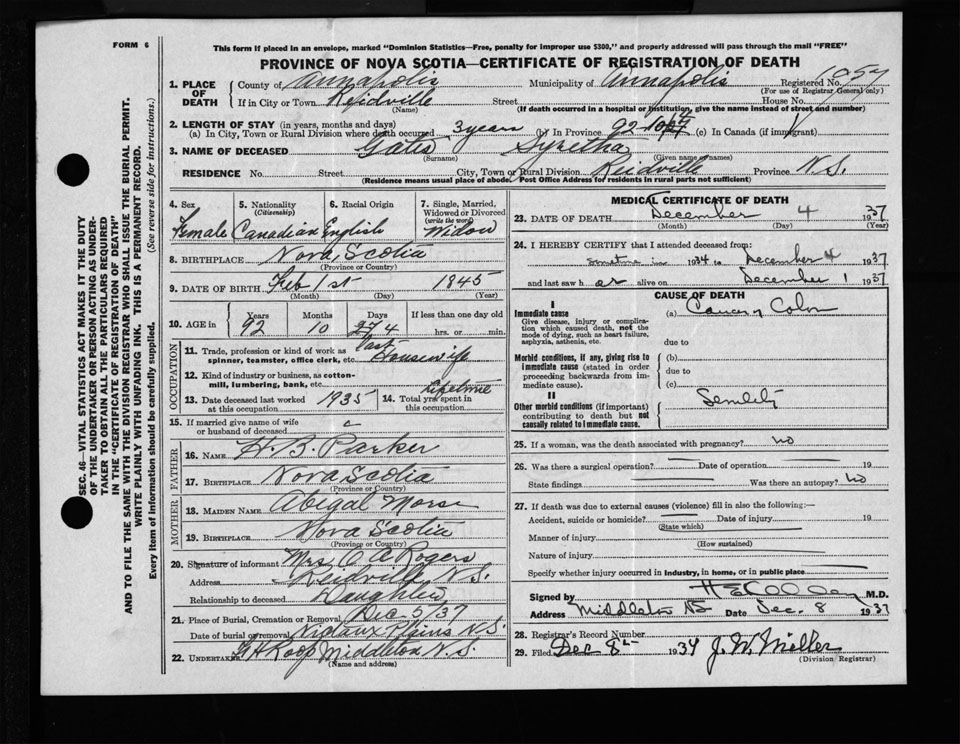 FORM 6
This form if placed in an envelope, marked "Dominion Statistics—Free, penalty for improper use $300," and properly addressed will pass through the mail "FREE"
PROVINCE OF NOVA SCOTIA—CERTIFICATE OF REGISTRATION OF DEATH
SEC. 46—VITAL STATISTICS ACT MAKES IT THE DUTY
OF THE UNDERTAKER OR PERSON ACTING AS UNDER-
TAKER TO OBTAIN ALL THE PARTICULARS REQUIRED
IN THE "CERTIFICATE OF REGISTRATION OF DEATH"
AND TO FILE THE SAME WITH THE DIVISION REGISTRAR WHO SHALL ISSUE THE BURIAL PERMIT.
WRITE PLAINLY WITH UNFADING INK. THIS IS A PERMANENT RECORD.
Every item of Information should be carefully supplied. (See reverse side for instructions.)
1. PLACE OF DEATH County of Annapolis Municipality of Annapolis Registered No. 1957
(For use of Registrar General only)
If in City or Town Reidville Street House No.
(Name) (If death occurred in a hospital or institution, give the name instead of street and number)
2. LENGTH OF STAY (in years, months and days)
(a) In City, Town or Rural Division where death occurred 3 years (b) In Province 92 (c) In Canada (if immigrant)
3. NAME OF DECEASED Gates Syretha
(Surname) (Given name or names)
RESIDENCE No. Street City, Town or Rural Division Reidville Province N.S.
(Residence means usual place of abode. Post Office Address for residents in rural parts not sufficient)
4. Sex 5. Nationality 6. Racial Origin 7. Single, Married,
(Citizenship) Widowed or Divorced
(write the word)
Female Canadian English Widow
8. BIRTHPLACE Nova Scotia
(Province or Country)
9. DATE OF BIRTH Feb 1st 1845
(Month) (Day) (Year)
10. AGE in Years Months Days If less than one day old
92 10 4 hrs. or min.
OCCUPATION
11. Trade, profession or kind of work as Past Housewife
spinner, teamster, office clerk, etc.
12. Kind of industry or business, as cotton-
mill, lumbering, bank, etc.
13. Date deceased last worked at this occupation 1935 14. Total yrs. spent in this occupation Lifetime
15. If married give name of wife
or husband of deceased
FATHER
16. NAME H. B. Parker
17. BIRTHPLACE Nova Scotia
(Province or Country)
MOTHER
18. MAIDEN NAME Abigal Morse
19. BIRTHPLACE Nova Scotia
(Province or Country)
20. Signature of informant Mrs. C A Rogers
Address Reidville N.S.
Relationship to deceased Daughter
21. Place of Burial, Cremation or Removal Dec 5/37
Date of burial or removal Nictaux Plains N.S.
22. UNDERTAKER G H Roop Middleton N.S.
(Name and address)
MEDICAL CERTIFICATE OF DEATH
23. DATE OF DEATH December 4 1937
(Month) (Day) (Year)
24. I HEREBY CERTIFY that I attended deceased from:
Sometime in 1934 to December 4 1937
and last saw h er alive on December 1 1937
CAUSE OF DEATH
I
Immediate cause (a) Cancer of Colon
Give disease, injury or complication which caused death, not the mode of dying, such as heart failure, asphyxia, asthenia, etc. due to
Morbid conditions, if any, giving rise to immediate cause (stated in order proceeding backwards from immediate cause). (b)
due to
(c)
II
Other morbid conditions (if important) contributing to death but not causally related to immediate cause. Senility
25. If a woman, was the death associated with pregnancy? no
26. Was there a surgical operation? Date of operation 19
State findings Was there an autopsy? No
27. If death was due to external causes (violence) fill in also the following:—
Accident, suicide or homicide? Date of injury 19
(State which)
Manner of injury
(How sustained)
Nature of injury
Specify whether injury occurred in Industry, in home, or in public place
Signed by M.D.
Address Middleton NS Date Dec. 8 1937
28. Registrar's Record Number
29. Filed Dec 8th 1937 J. W. Miller
(Division Registrar)